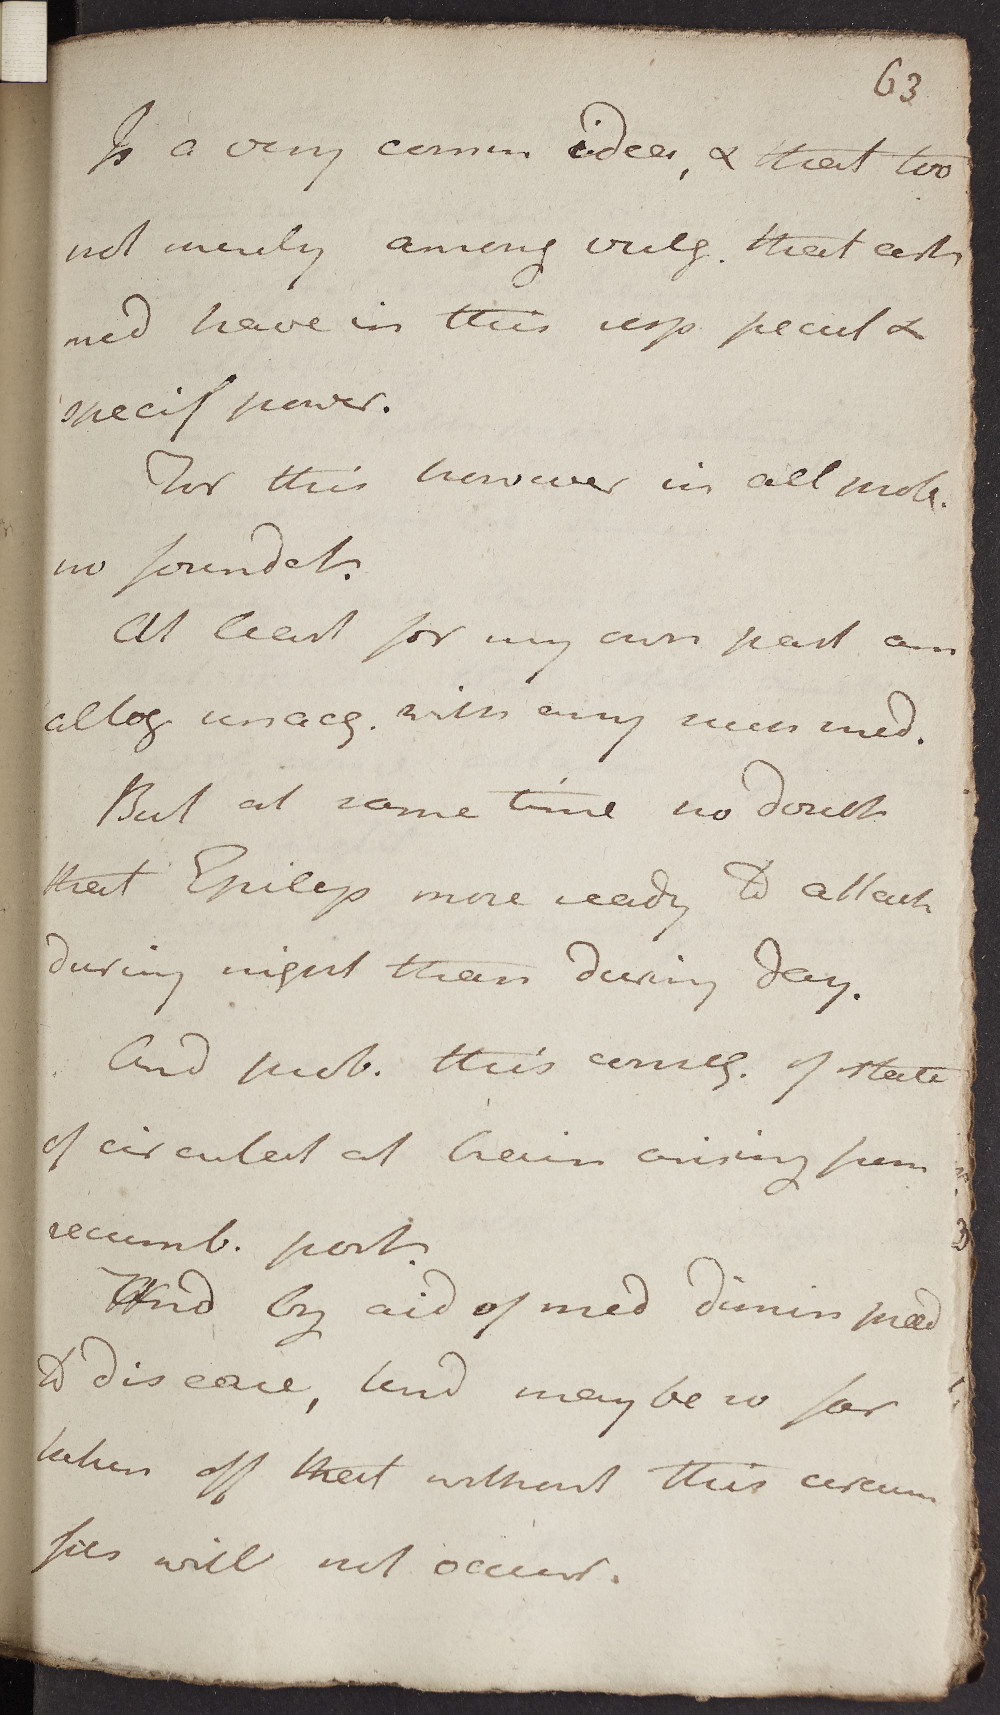 63
Is a very comm idea, & that too
not merely among vulg. that certn
med have in this resp pecul &
specif power.
For this however in all prob.
no foundatn.
At least for my own part am
altog unacq. with any such med.
But at same time no doubt
that Epileps more ready to attack
during night than during day.
And prob. this conseq. of state
of circulat at brain arising from
recumb. postr.
And by aid of med dimin pred
to disease, tend may be so far
taken off that without this circum
fits will not occur.